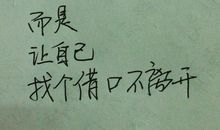 而是
让自己
找个借口不离开